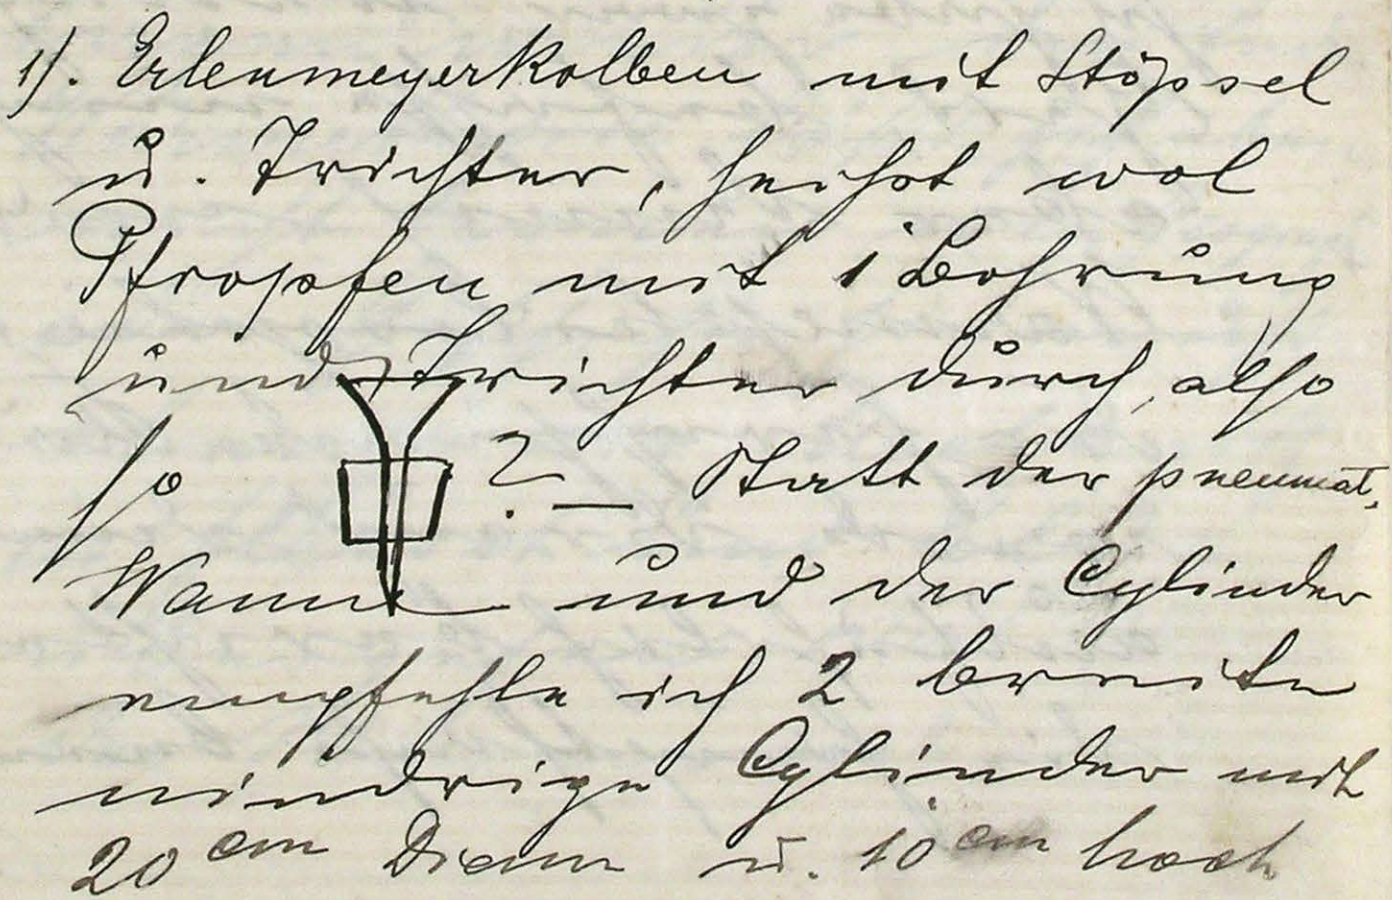 1). Erlenmeyerkolben mit Stöpsel
u. Trichter, heißt wol
Pfropfen mit 1 Bohrung
und Trichter durch, also
so ? — Statt der pneumat.
Wanne und der Cylinder
empfehle ich 2 breite
niedrige Cylinder mit
20 cm Diam u. 10 cm hoch